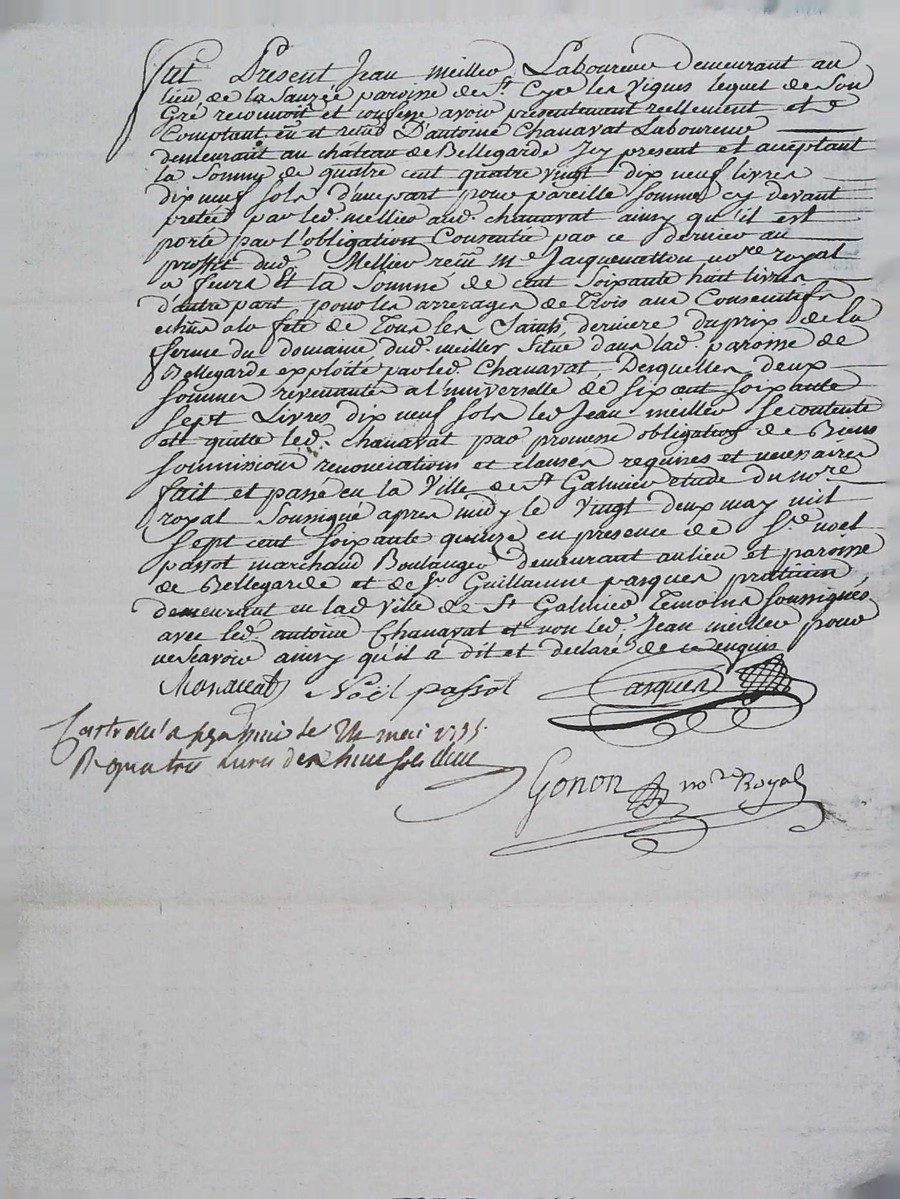 fut Present Jean meiller Laboureur demeurant au
lieu de la Sauzée paroisse de St. Cyr les Vignes lequel de Son
Gré reconnoit et confesse avoir presentement reellement et
Comptant eu et reçu D'antoine Chanavat Laboureur
demeurant au château de Bellegarde Icy present et acceptant
la Somme de quatre cent quatre vingt dix neuf livres
dix neuf sols d'une part pour pareille somme cy devant
pretée par led. mellier aud. chanavat ainsy qu'il est
porté par l'obligation Consentie par ce dernier au
proffit dud. Mellier reçu Me Jacquemetton nore royal
a feurs Et la Somme de cent soixante huit livres
d'autre part pour les arrerages de Trois ans Consecutifs
echus a la fête de Tous les Saints derniere du prix de la
ferme du domaine dud. meiller situé dans lad. paroisse de
Bellegarde exploité par led. Chanavat, Desquelles deux
sommes revenante a l'universelle de six cent soixante
sept Livres dix neuf sols led Jean meiller se contente
et quitte led. chanavat par promesse obligation de Biens
soumissions renonciations et clauses requises et necessaires
fait et passé en la Ville de St Galmier etude du nore
royal Soussigné apres midy le vingt deux may mil
sept cent soixante quinze en presence de Sr noel
passot marchand Boulanger demeurant au lieu et paroisse
de Bellegarde et de Sr Guillaume pasquer praticien
demeurant en lad ville de St Galmier Temoins soussignés
avec led. antoine Chanavat et non led. Jean meiller pour
ne scavoir ainsy qu'il a dit et declaré de ce enquis
Chanavat Noël passot Pasquer
Controllé a le 24 mai
R quatre livres dix huit sols
Gonon nore Royal